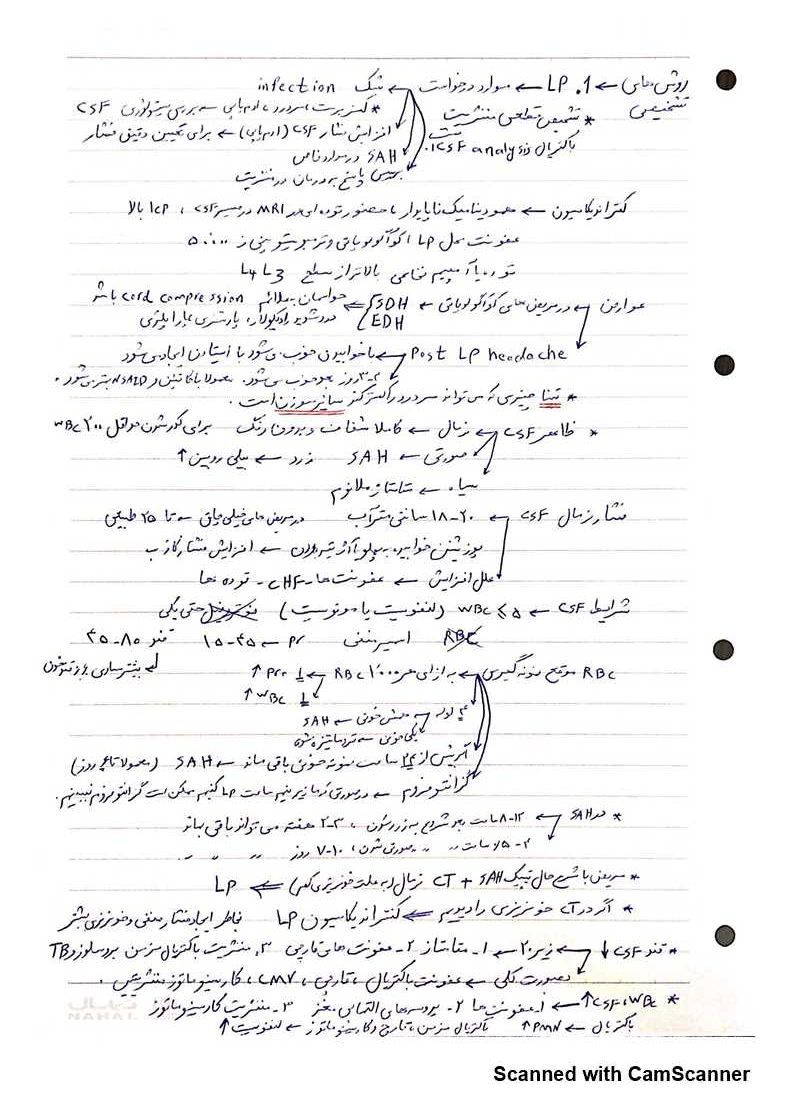 روش های تشخیصی ← 1. LP ← موارد درخواست ← شک infection
* تشخیص قطعی مننژیت باکتریال CSF analysis است.
* کنژیت، سردرد، ادم پاپی ← بررسی سیتولوژی CSF
افزایش فشار CSF (ادم پاپی) ← برای تعیین دقیق فشار
SAH در موارد خاص
بررسی پاسخ به درمان در مننژیت
کنتراندیکاسیون ← همودینامیک ناپایدار، حضور توده ای در MRI در مسیر CSF، ICP بالا
عفونت محل LP، کوآگولوپاتی و ترومبوسیتوپنی ز 50000
توده یا آمپیم نخاعی بالاتر از سطح L3 L4
عوارض ← در مریض های کوآگولوپاتی ← SDH EDH ← حواسمان به علائم cord compression باشد
درد شدید رادیکولار، پارستزی یا پاراپلژی
Post LP headache ← با خوابیدن خوب می شود با ایستادن ایجاد می شود
2-3 روز بعد خوب می شود. معمولا با کافئین و NSAID بهتر می شود.
* تنها چیزی که می تواند سردرد را کمتر کند سایز سوزن است.
* ظاهر CSF ← نرمال ← کاملا شفاف و بدون رنگ برای کدر شدن حداقل 200 WBC
صورتی ← SAH زرد ← بیلی روبین ↑
سیاه ← متاستاز ملانوم
فشار نرمال CSF ← 18-20 سانتی متر آب در مریض های خیلی چاق ← تا 25 طبیعی
پوزیشن خوابیده به پهلو ← افزایش فشار کاذب
علل افزایش ← عفونت ها - CHF - توده ها
شرایط CSF ← WBC ≤ 5 (لنفوسیت یا مونوسیت) حتی یکی
RBC Pr ← 15-45 قند 45-80
RBC موقع نمونه گیری ← به ازای هر 1000 RBC ← 1 Pro ↑ بیشترمساوی قند خون
1 WBC ↑
4 لوله ← همش خونی ← SAH
یکی خونی ← تروماتیزه شده
اگر بیش از 24 ساعت نمونه خونی باقی ماند ← SAH (معمولا تا روز)
گزانتوکروم ← در صورتی که ما زیر نیم ساعت LP کنیم ممکن است گزانتوکروم نبینیم.
* در SAH ← 8-12 ساعت بعد شروع به زرد شدن، 2-3 هفته می تواند باقی بماند
2- ساعت 〃 〃 صورتی شدن، 7-10 روز 〃 〃 〃
* مریض با شرح حال تیپیک SAH + CT نرمال (به علت خونریزی کم) ← LP
* اگر در CT خونریزی را دیدیم ← کنتراندیکاسیون LP بخاطر ایجاد فشار منفی و خونریزی بیشتر
* قند CSF ↓ ← زیر 20 ← 1- متاستاز 2- عفونت های قارچی 3- مننژیت باکتریال مزمن بروسلوز و TB
بصورت کلی ← عفونت باکتریال، قارچی، CMV، کارسینوماتوز مننژیتیس.
* WBC، CSF ↑ ← 1- عفونت ها 2- پروسه های التهابی مغز 3- مننژیت کارسینوماتوز
باکتریال ← PMN ↑ باکتریال مزمن، قارچ و کارسینوماتوز ← لنفوسیت ↑
NAHAL
Scanned with CamScanner